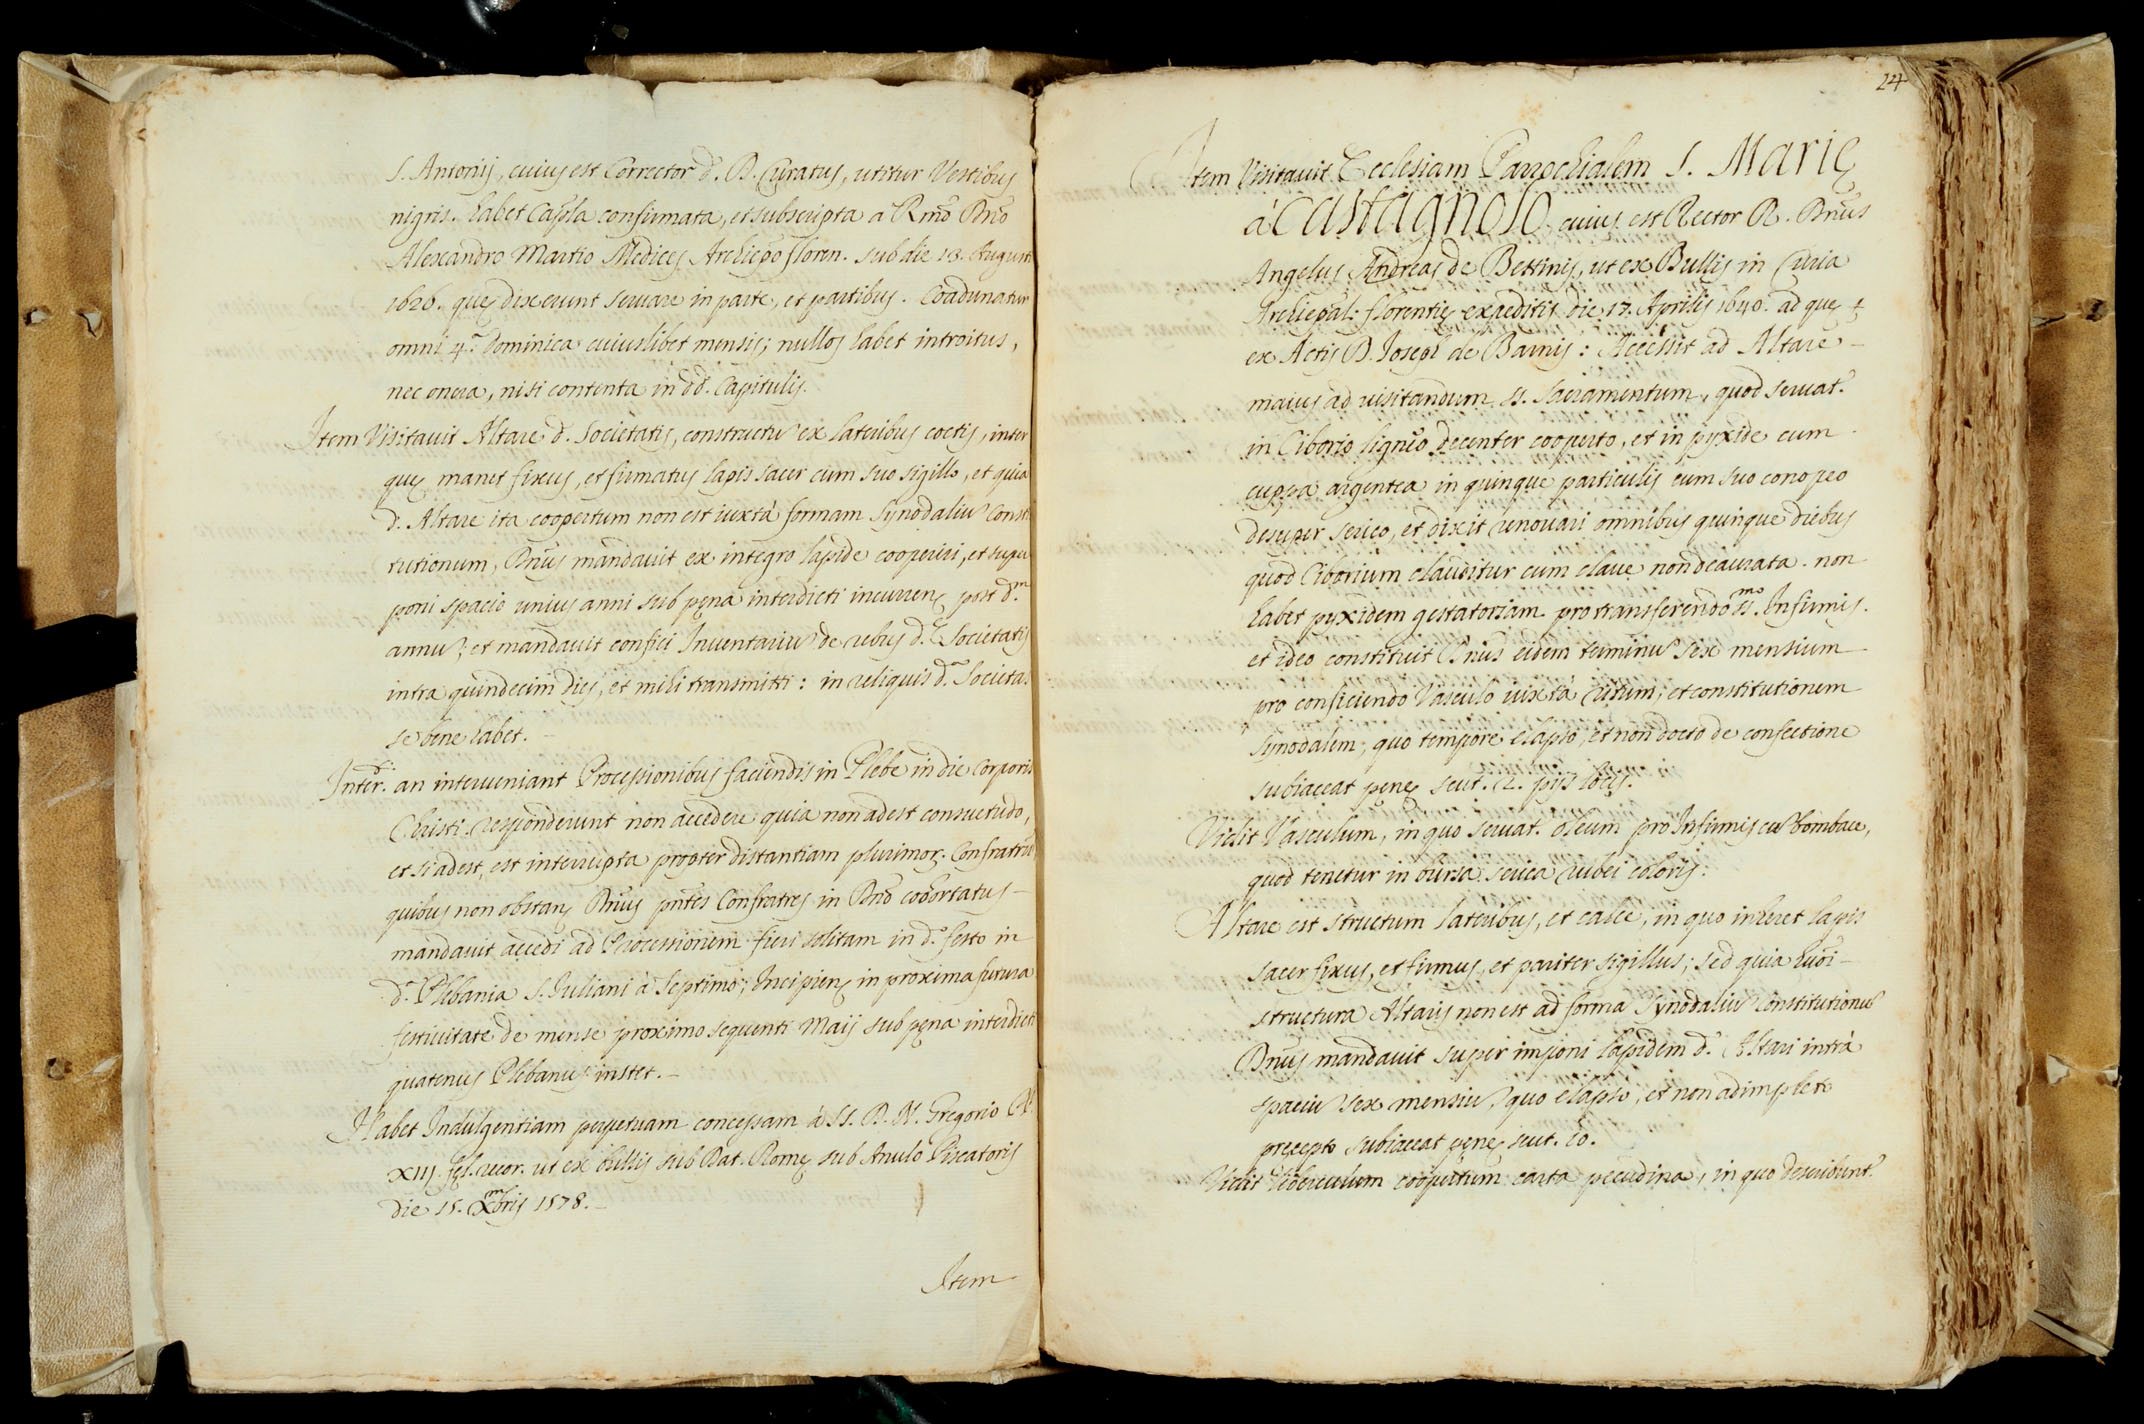 S. Antonij, cuius est Corrector d. D. Curatus, utitur Vestibus
nigris. habet Capla confirmata, et subscripta a Rmo Dno
Alexandro Martio Medices Archiepo floren. sub die 18. Augusti
1626. que dixerunt servare in parte, et partibus. Coadunatur
omni 4.a Dominica cuiuslibet mensis; nullos habet introitus,
nec onera, nisi contenta in dd. Capitulis.
Item Visitavit Altare d. Societatis, constructu ex lateribus coctis, inter
que manet fixus, et firmatus lapis sacer cum suo sigillo, et quia
d. Altare ita coopertum non est iuxtà formam Synodaliu Consti
tutionum, Dnus mandavit ex integro lapide cooperiri, et super
poni spacio unius anni sub pęna interdicti incurren. post d.m
annu; et mandavit confici Inventariu de rebus d. Societatis
intra quindecim dies, et mihi transmitti: in reliquis d. Societas
se bene habet.
Inter.di an interveniant Processionibus faciendis in Plebe in die Corporis
Christi. responderunt non accedere quia non adest consuetudo,
et si adest, est interrupta propter distantiam plurimor. Confratru
quibus non obstan. Dnus pntes Confratres in Dno cohortatus
mandavit accedi ad Processionem fieri solitam in d. festo in
d. Plebania S. Iuliani à Septimo; Incipien. in proxima futura
festivitate de mense proximo sequenti Maij sub pęna interdicti
quatenus Plebanus instet.
Habet Indulgentiam perpetuam concessam à SS. D. N. Gregorio PP.
XIIJ. fel. recor. ut ex bullis sub Dat. Romę sub Anulo Piscatoris
die 15. Xmbris 1578.
Item
24
Item Visitavit Ecclesiam Parrochialem S. Marię
à Castagnolo cuius est Rector R. Dnus
Angelus Andreas de Bettinis, ut ex Bullis in Curia
Archiepal: florentię expeditis die 17. Aprilis 1640. ad que
ex Actis D. Joseph de Barnis: Accessit ad Altare
maius ad visitandum SS. Sacramentum, quod servat.
in Ciborio ligneo decenter cooperto, et in pyxide cum
cuppa argentea in quinque particulis cum suo conopeo
desuper serico, et dixit renovari omnibus quinque diebus
quod Ciborium clauditur cum clave non deaurata. non
habet pyxidem gestatoriam pro transferendo SS.mo Infirmis.
et ideo constituit Dnus eidem terminu sex mensium
pro conficiendo Vasculo iuxtà ritum, et constitutionem
synodalem, quo tempore elapso, et non docto de confectione
subiaceat pęnę scut. 2. pijs locis.
Vidit Vasculum, in quo servat. oleum pro Infirmis cu bombace,
quod tenetur in bursa serica rubei coloris.
Altare est structum lateribus, et calce, in quo inheret lapis
sacer fixus, et firmus, et pariter sigillus; sed quia huoi
structura Altaris non est ad forma Synodaliu Constitutionu
Dnus mandavit super imponi lapidem d. Altari intrà
spaciu sex mensiu, quo elapso, et non adimpleto
precepto subiaceat pęnę scut. 10.
Vidit liberculum coopertum carta pecudina, in quo describunt.